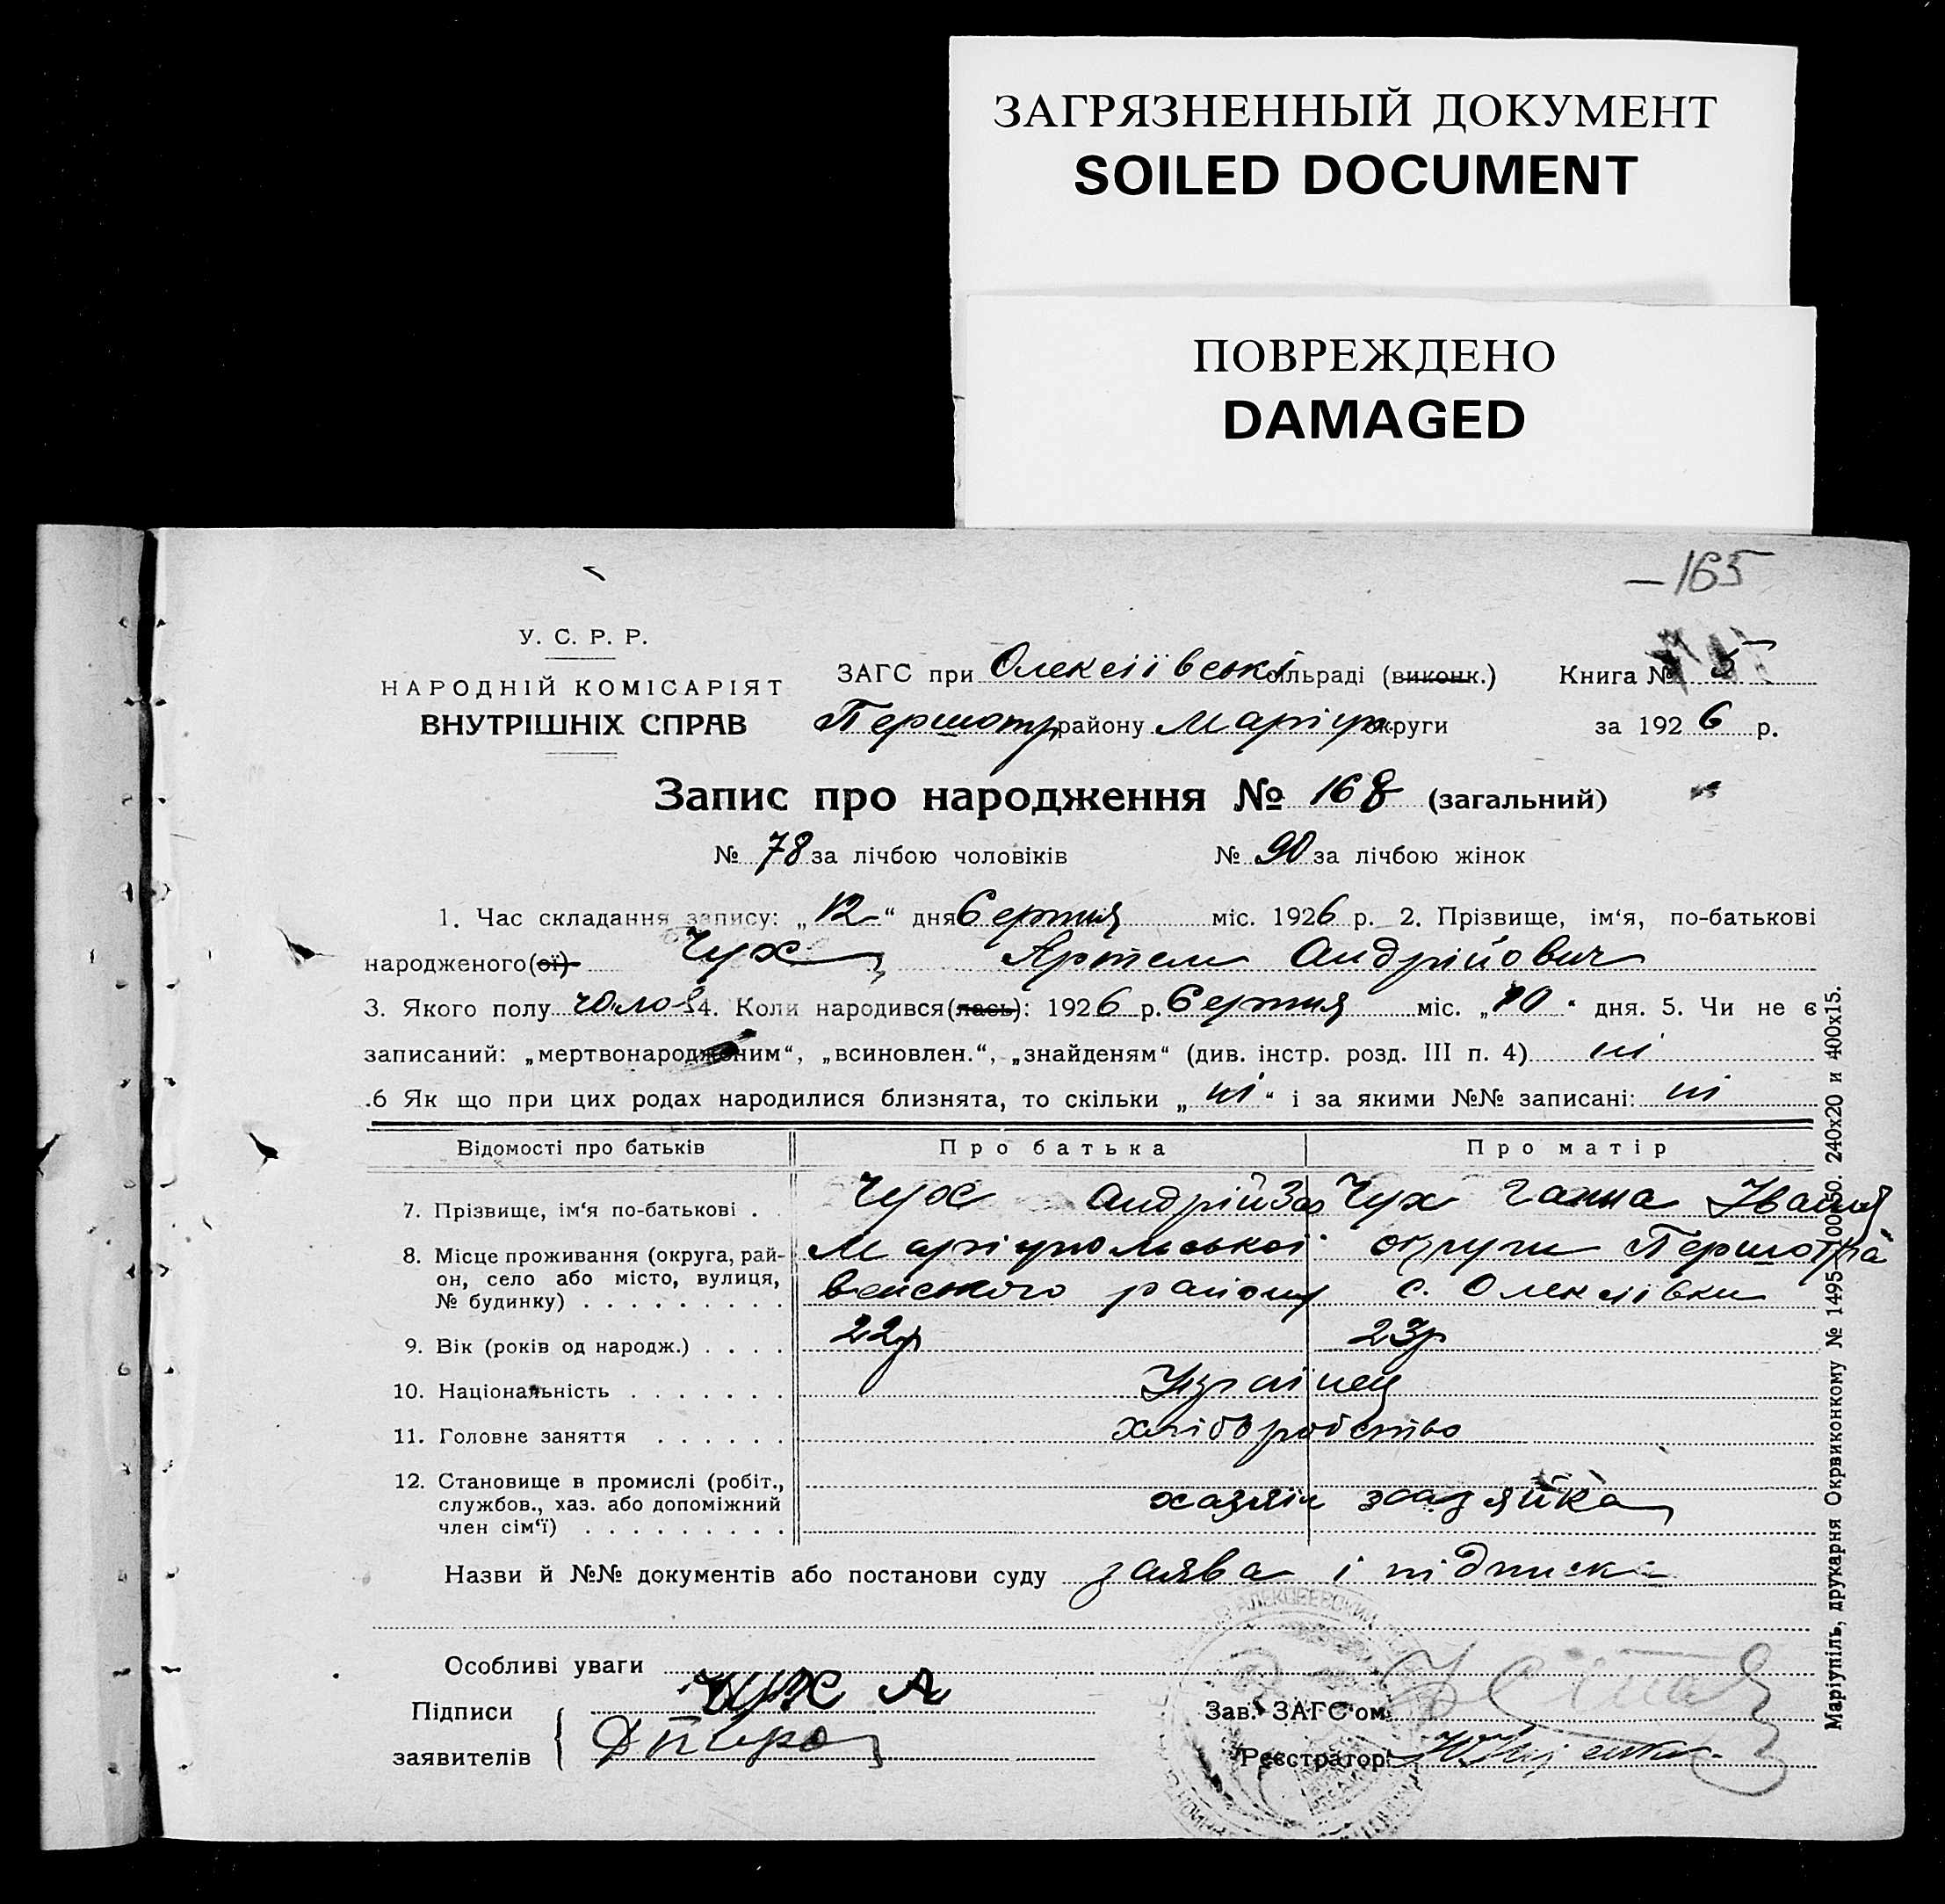 ЗАГРЯЗНЕННЫЙ ДОКУМЕНТ
SOILED DOCUMENT
ПОВРЕЖДЕНО
DAMAGED
—165
У. С. Р. Р.
НАРОДНІЙ КОМІСАРІЯТ
ВНУТРІШНІХ СПРАВ
ЗАГС при Олексіївські сільраді (виконк.) Книга № 5
Першотр району Маріуп округи за 1926 р.
Запис про народження № 168 (загальний)
№ 78 за лічбою чоловіків № 90 за лічбою жінок
1. Час складання запису: „12“ дня Серпня міс. 1926 р. 2. Прізвище, ім‘я, по-батькові
народженого(ої) Чух Артем Андрійович
3. Якого полу чолов 4. Коли народився(лась): 1926 р. Серпня міс. „10“ дня. 5. Чи не є
записаний: „мертвонародженим“, „всиновлен.“, „знайденям“ (див. інстр. розд. III п. 4) ні
.6 Як що при цих родах народилися близнята, то скільки „ні“ і за якими №№ записані: ні
Відомості про батьків Про батька Про матір
7. Прізвище, ім‘я по-батькові . Чух Андрій Чух Ганна Іван
8. Місце проживання (округа, рай-
он, село або місто, вулиця,
№ будинку) . . . . . . . . .
Маріупольської округи Першотра
венского району с. Олексіївки
9. Вік (років од народж.) . . . . 22р 23р
10. Національність . . . . . . . Українец
11. Головне заняття . . . . . . Хліборобство
12. Становище в промислі (робіт.,
службов., хаз. або допоміжний
член сім‘ї) . . . . . . . . .
хазяін хазяйка
Назви й №№ документів або постанови суду заява і підписка
Особливі уваги
Підписи
заявителів
Чух А
Зав. ЗАГС‘ом
Реєстратор:
Маріупіль, друкарня Окрвиконкому № 1495—10050. 240х20 и 400х15.